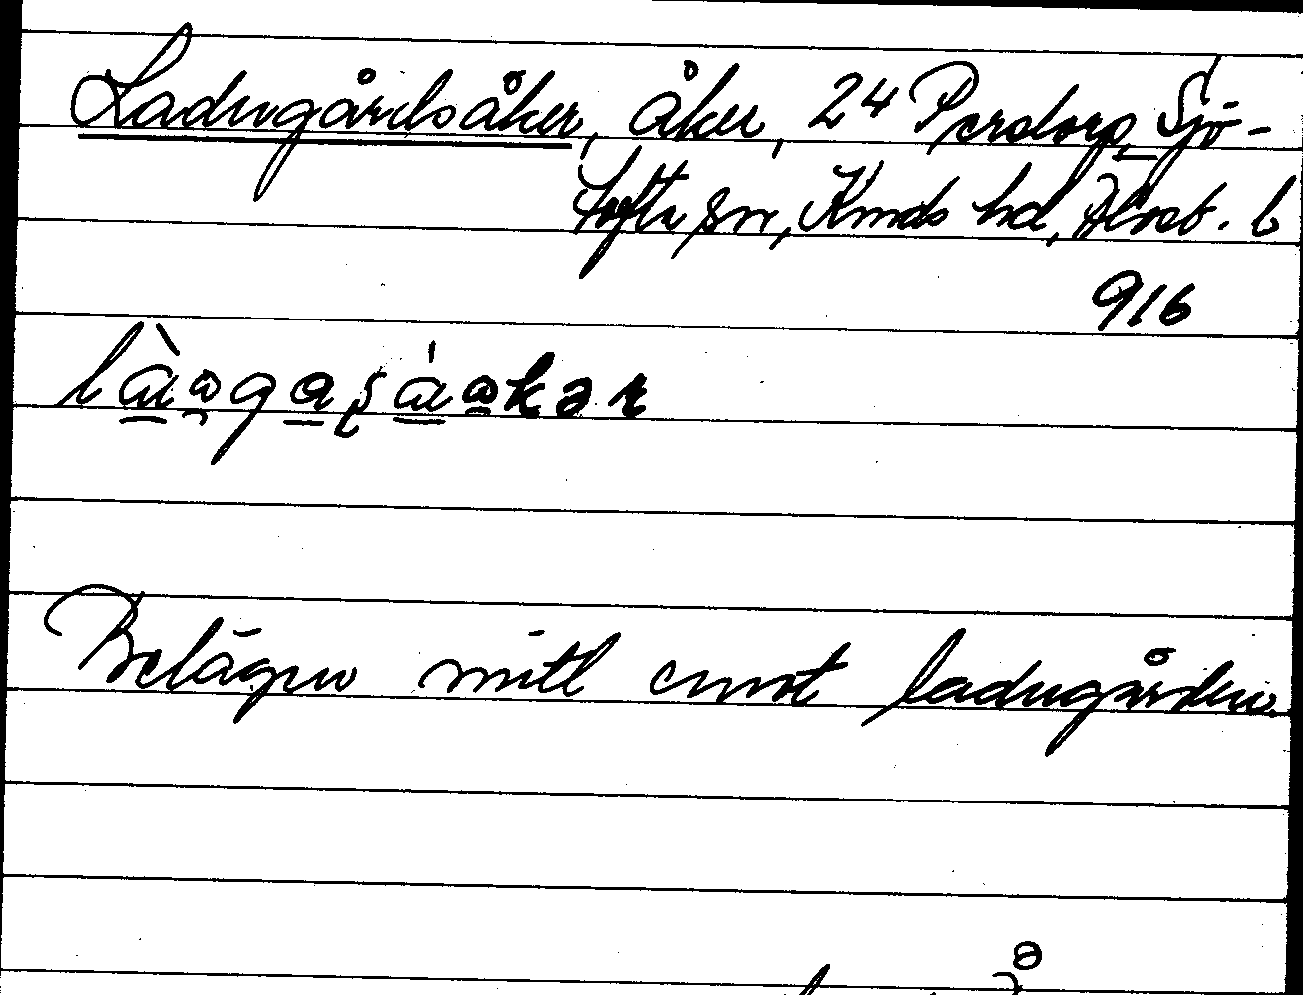 Ladugårdsåker, åker, 24 Perstorp, Sjö-
tofta sn, Kinds hd, Älvsb. l
916
Belägen mitt emot ladugården.